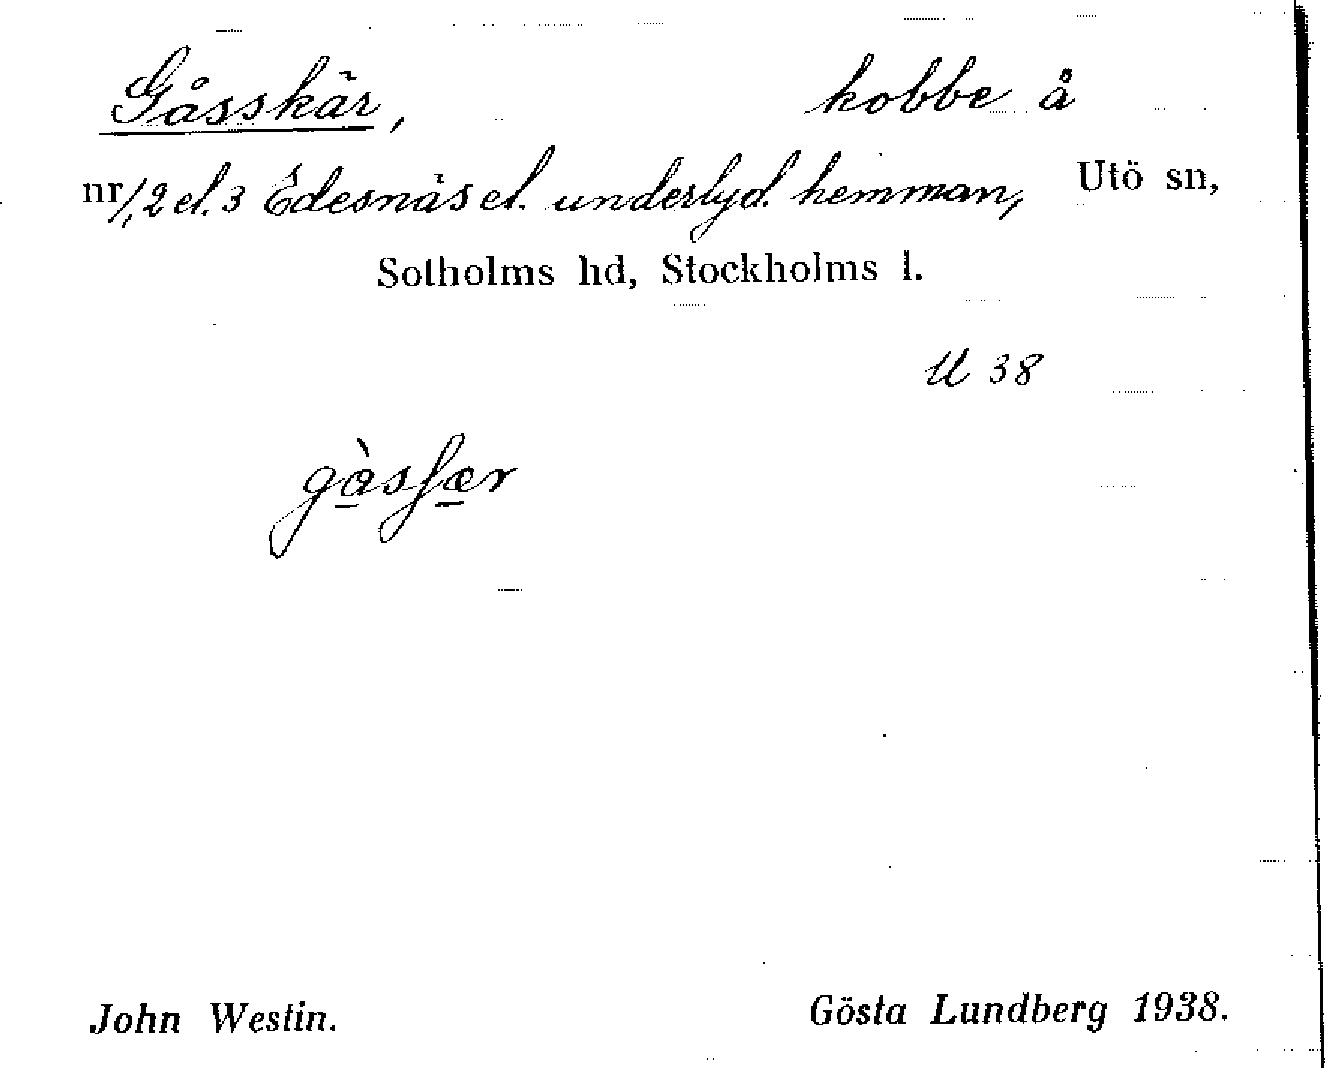 Gåsskär, kobbe å
nr 1, 2 el. 3 Edesnäs el. underlyd. hemman, Utö sn,
Sotholms hd, Stockholms l.
U 38
gàsʃær
John Westin. Gösta Lundberg 1938.